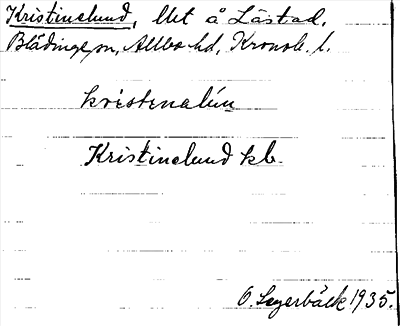 Kristinelund, lht å Låstad,
Blädinge sn, Allbo hd, Kronob. l.
kristenalún
Kristinelund kb.
O. Lagerbäck 1935.